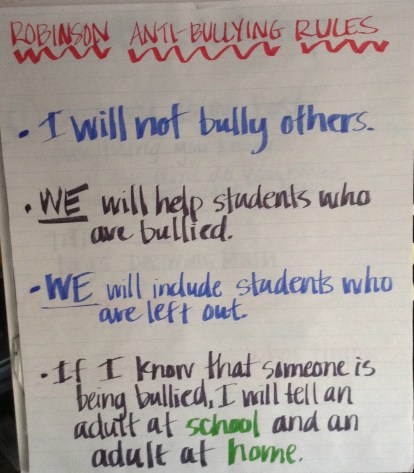 ROBINSON ANTI-BULLYING RULES
• I will not bully others.
• WE will help students who
are bullied.
- WE will include students who
are left out.
• If I know that someone is
being bullied, I will tell an
adult at school and an
adult at home.